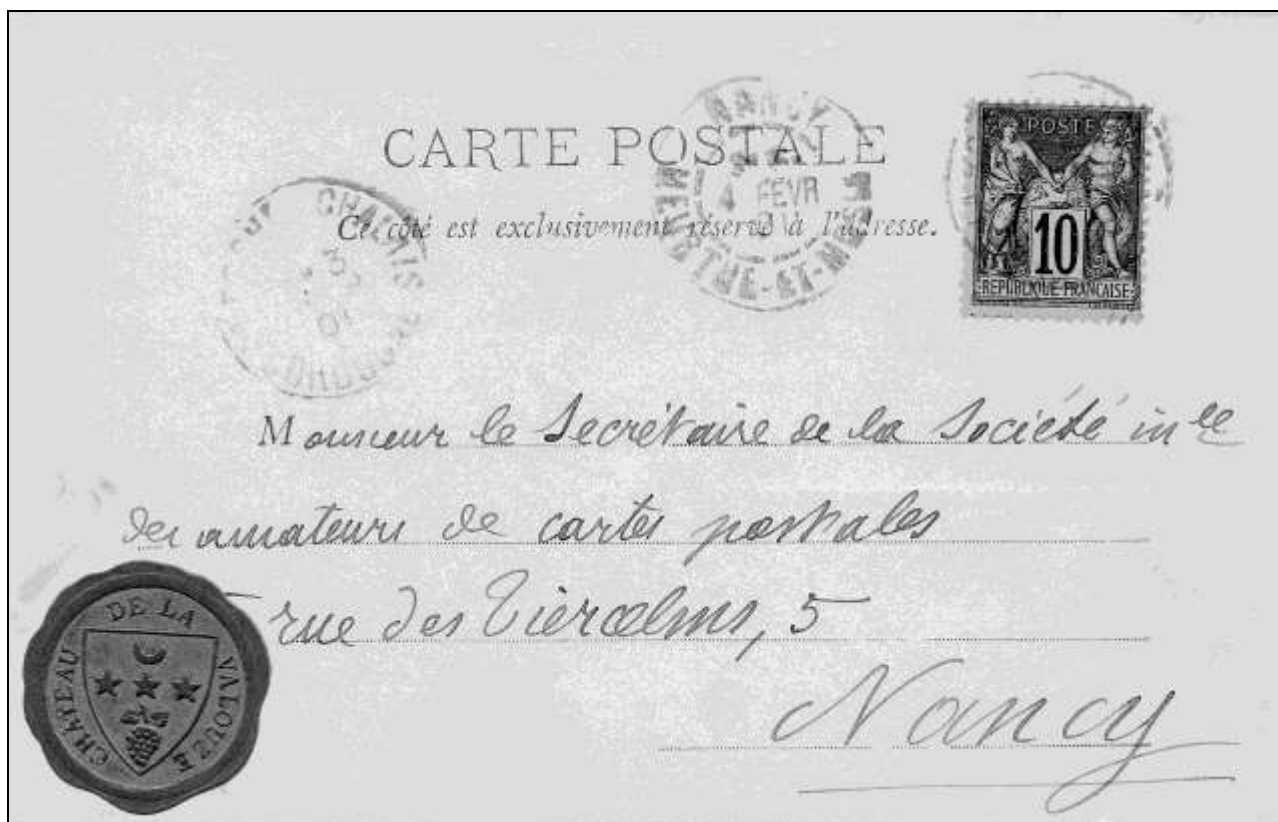 CARTE POSTALE
Ce côté est exclusivement réservé à l'adresse.
NANCY
4 FEVR
MEURTHE-ET-MOSELLE
CHALAIS
01
DORDOGNE
POSTE
10
REPUBLIQUE FRANÇAISE
Monsieur le Secrétaire de la Société in lle
des amateurs de cartes postales
rue des Tiercelins, 5
Nancy
CHÂTEAU DE LA VALOUZE